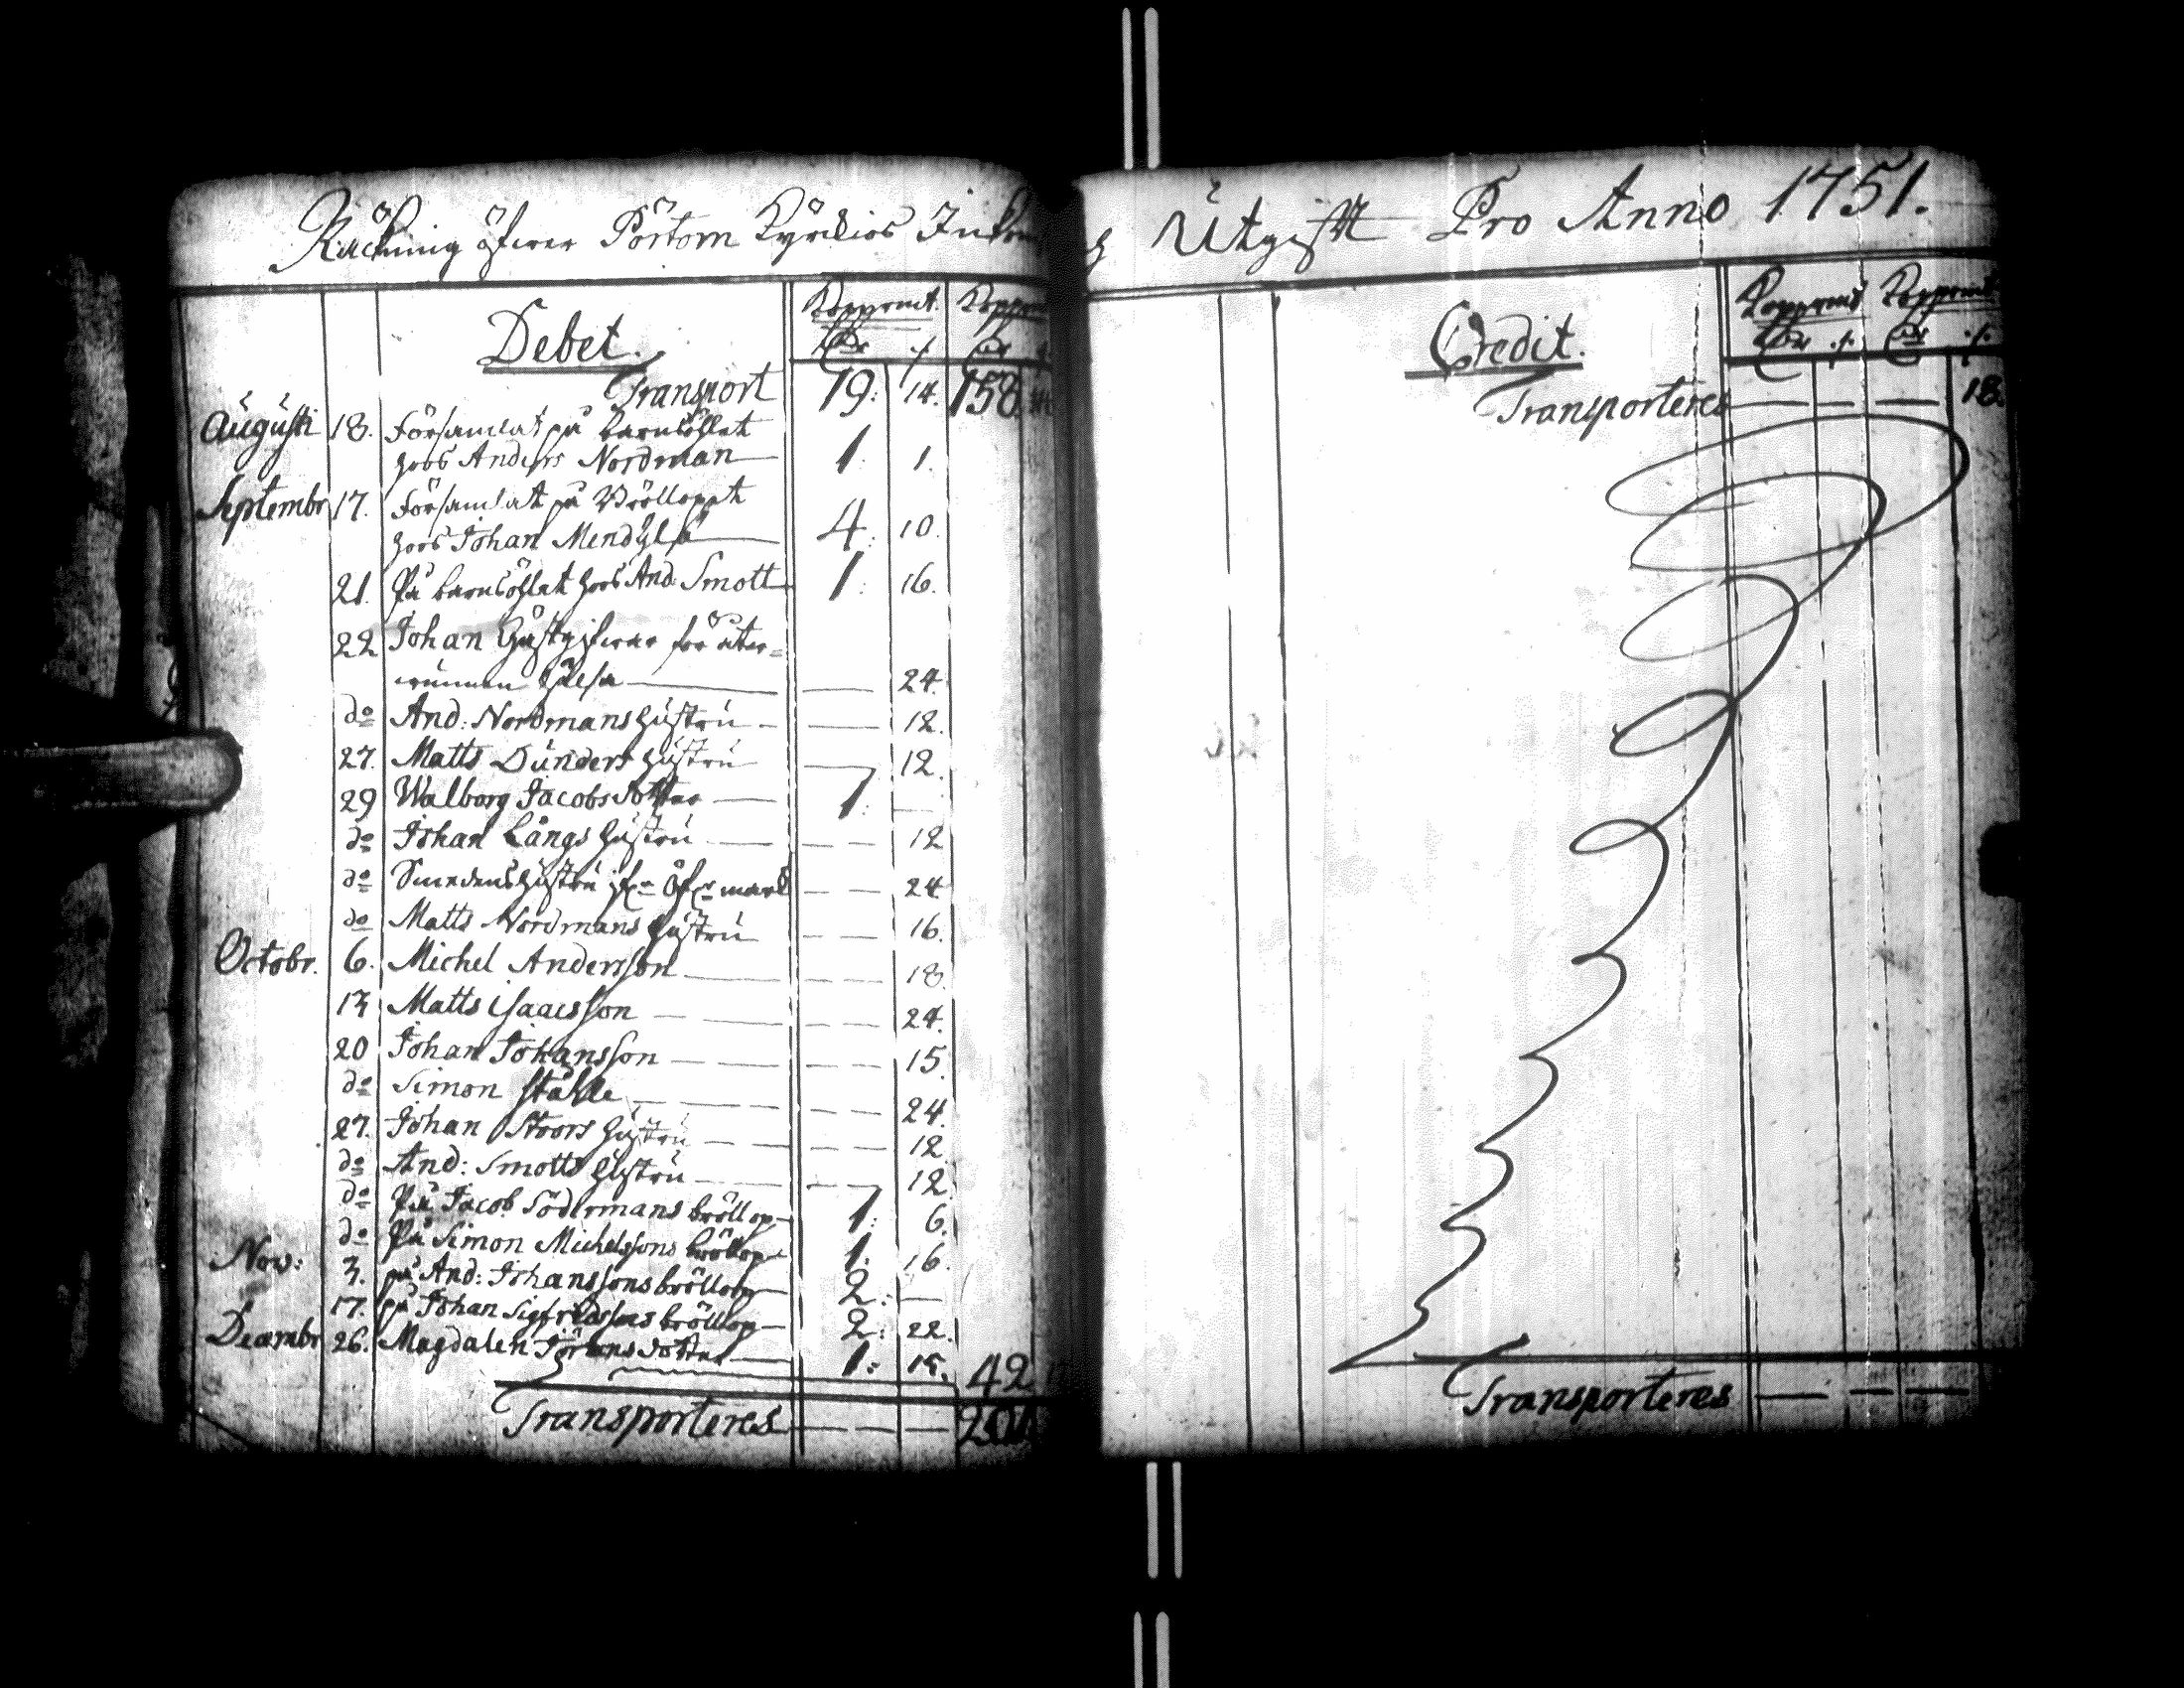 Räckning öfwer Pörtom Kyrckios Inkom
Debet.
Kopp:mt. Kopp
Transport 19: 14. 158
Augusti 18. Församlat på barnsöhlet
hoos Anders Nordman 1: 1.
Septembr 17. Församlat på Bröllopet
hoos Johan Mendhlsä 4: 10.
21. På barnsöhlet hoos And: Smott 1: 16.
22 Johan Gästgifware för åter-
wunnen hälsa 24.
do And: Nordmans hustru 12.
27. Matts Dunders hustru 12.
29 Walborg Jacobsdotter 1:
do Johan Långs hustru 12
do Smedens hustru ifr Öfr mark 24
do Matts Nordmans hustru 16.
Octobr. 6. Michel Andersson 18.
13 Matts isaacsson 24.
20 Johan Johansson 15.
do Simon Ståhle 24.
27. Johan Stoors hustru 12.
do And: Smotts hustru 12.
do På Jacob Södermans bröllop 1: 6.
do På Simon Michelssons bröllop 1: 16.
Nov: 3. på And: Johanssons bröllop 2:
17. på Johan Sigfredssons bröllop 2: 22.
Decembr 26. Magdalen Jörensdotter 1: 15. 42
Transporteres 201
Utgifft Pro Anno 1751.
Credit.
Koppmt Koppmt
Transporteres 18.
Transporteres